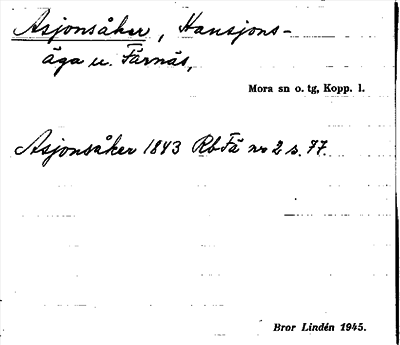 Asjonsåker, Hansjons-
äga u. Färnäs,
Mora sn o. tg, Kopp. l.
Asjonsåker 1843 Rb Fä nr 2 s. 77.
Bror Lindén 1945.